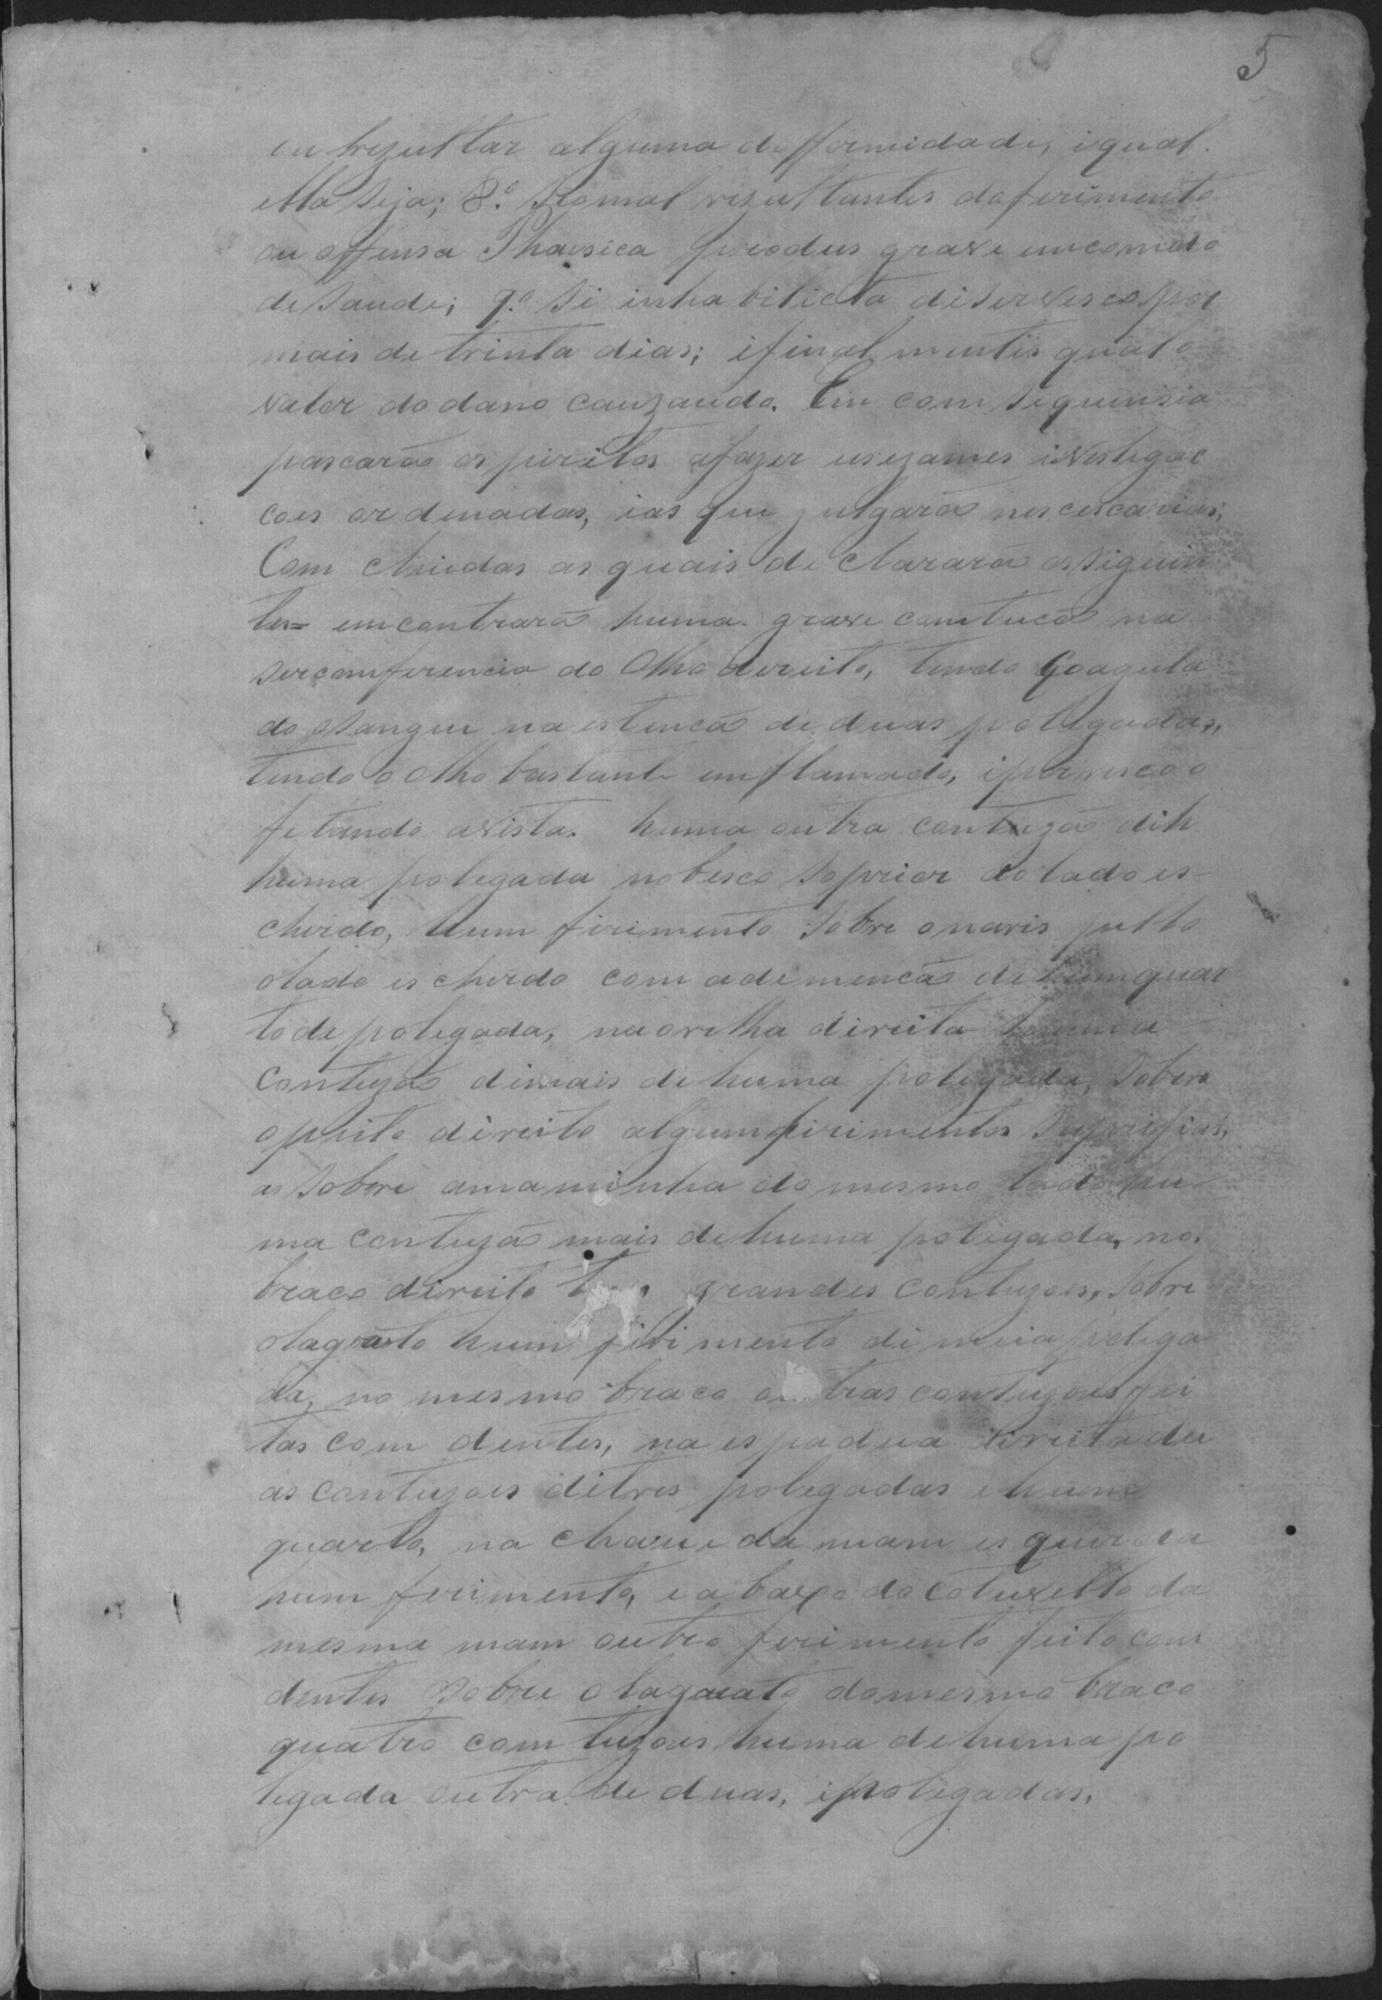 5
ou rezultar alguma defformidade, equal
ella seja; 8.º Se o mal rezultantes do ferimento
ou offensa Phaesica produs grave encomodo
de saude; 9.º Si inhabilicta di servesco por
mais de trinta dias; i final mentis qual o
valor do dano cauzando. Em com sequensia
pascarão os piritos afazer us ezames ivestigac
cois ordenadas, i as que julgarão nescescarias;
Com cluidas as quais de clararão os siguin
tes= emcontrarão huma grave comtucão na
sercomferencia do Olho direito, tendo Goagula
do o sangue na estencão de duas polegadas,
tendo o olho bastante emflamado, i por isco o
fetando a vista. huma outra contuzão di h
huma polegada no beico soprior do lado es-
cherdo, hum firimento sobre o naris pello
o lado escherdo com a demencão de hum quar
to de polegada, na orelha direita huma
Contuzão di mais di huma polegada, sobre
o peito direito algum firimentos suprifiais,
es sobre a maminha do mesmo lado hu
ma contuzão mais de huma polegada, no
braco direito grandes contuzois, sobre
o lagarto hum firimento di meia polega
da, no mesmo braco outras contuzois fei
tas com dentes, na espadua direita du
as contuzois di tres polegadas i hum
quarto, na chave da mam esquerda
hum ferimento, e a baxo do cotuvello da
mesma mam outro ferimento feito com
dentes sobre o lagarato do mesmo braco
quatro com tuzois huma de huma po
legada outra de duas, i polegadas,